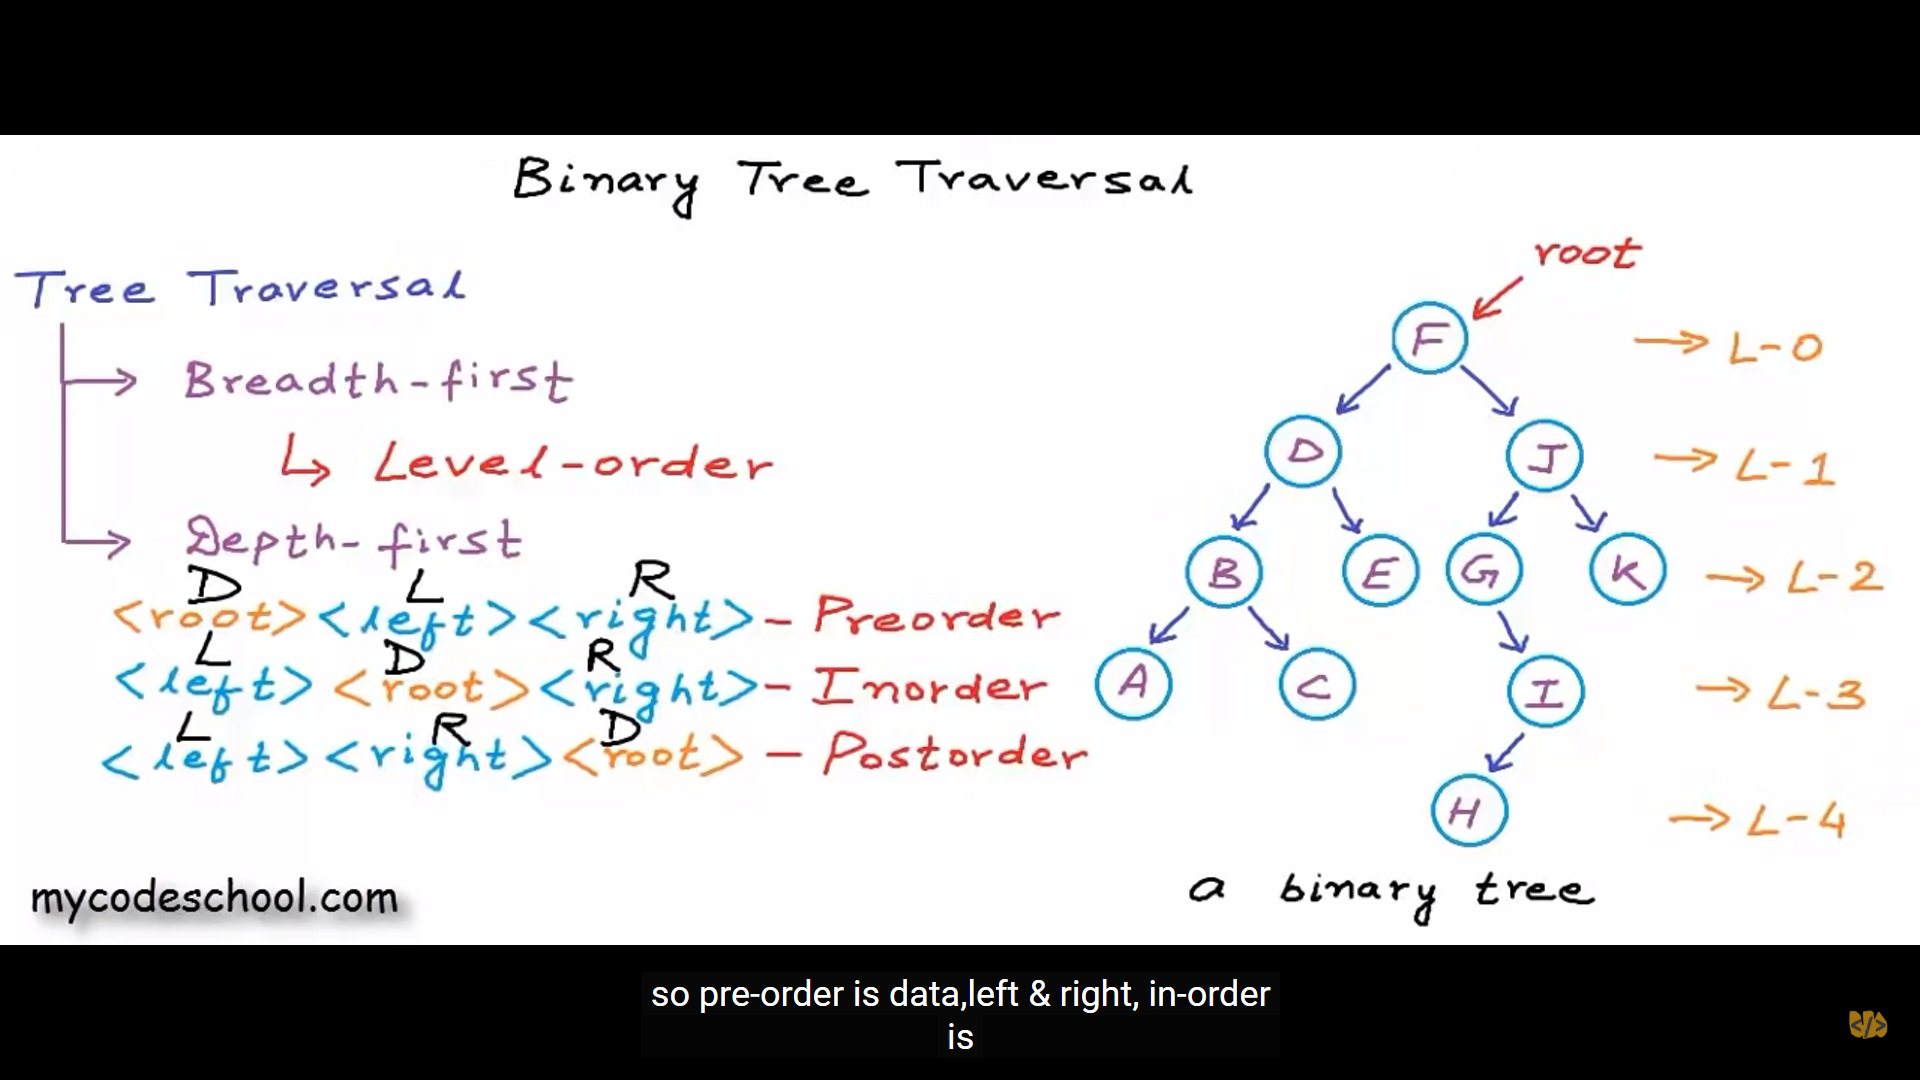 Binary Tree Traversal
Tree Traversal
Breadth-first
Level-order
Depth-first
D L R
<root><left><right> - Preorder
L D R
<left><root><right> - Inorder
L R D
<left><right><root> - Postorder
root
F L-0
D J L-1
B E G K L-2
A C I L-3
H L-4
a binary tree
mycodeschool.com
so pre-order is data,left & right, in-order
is